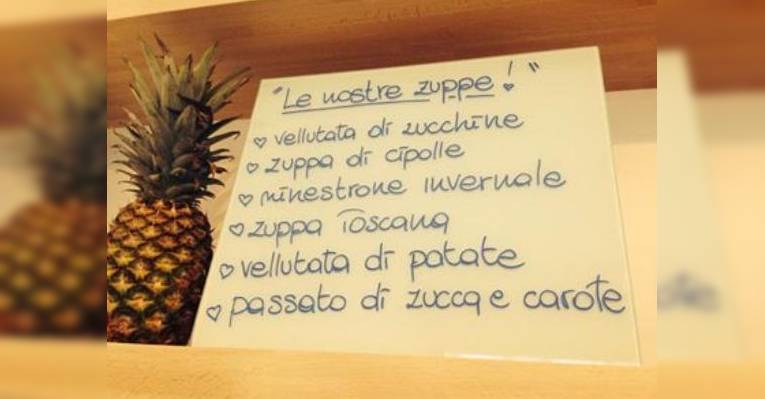 "Le nostre zuppe!"
♡ vellutata di zucchine
♡ zuppa di cipolle
♡ minestrone invernale
♡ zuppa Toscana
♡ vellutata di patate
♡ passato di zucca e carote